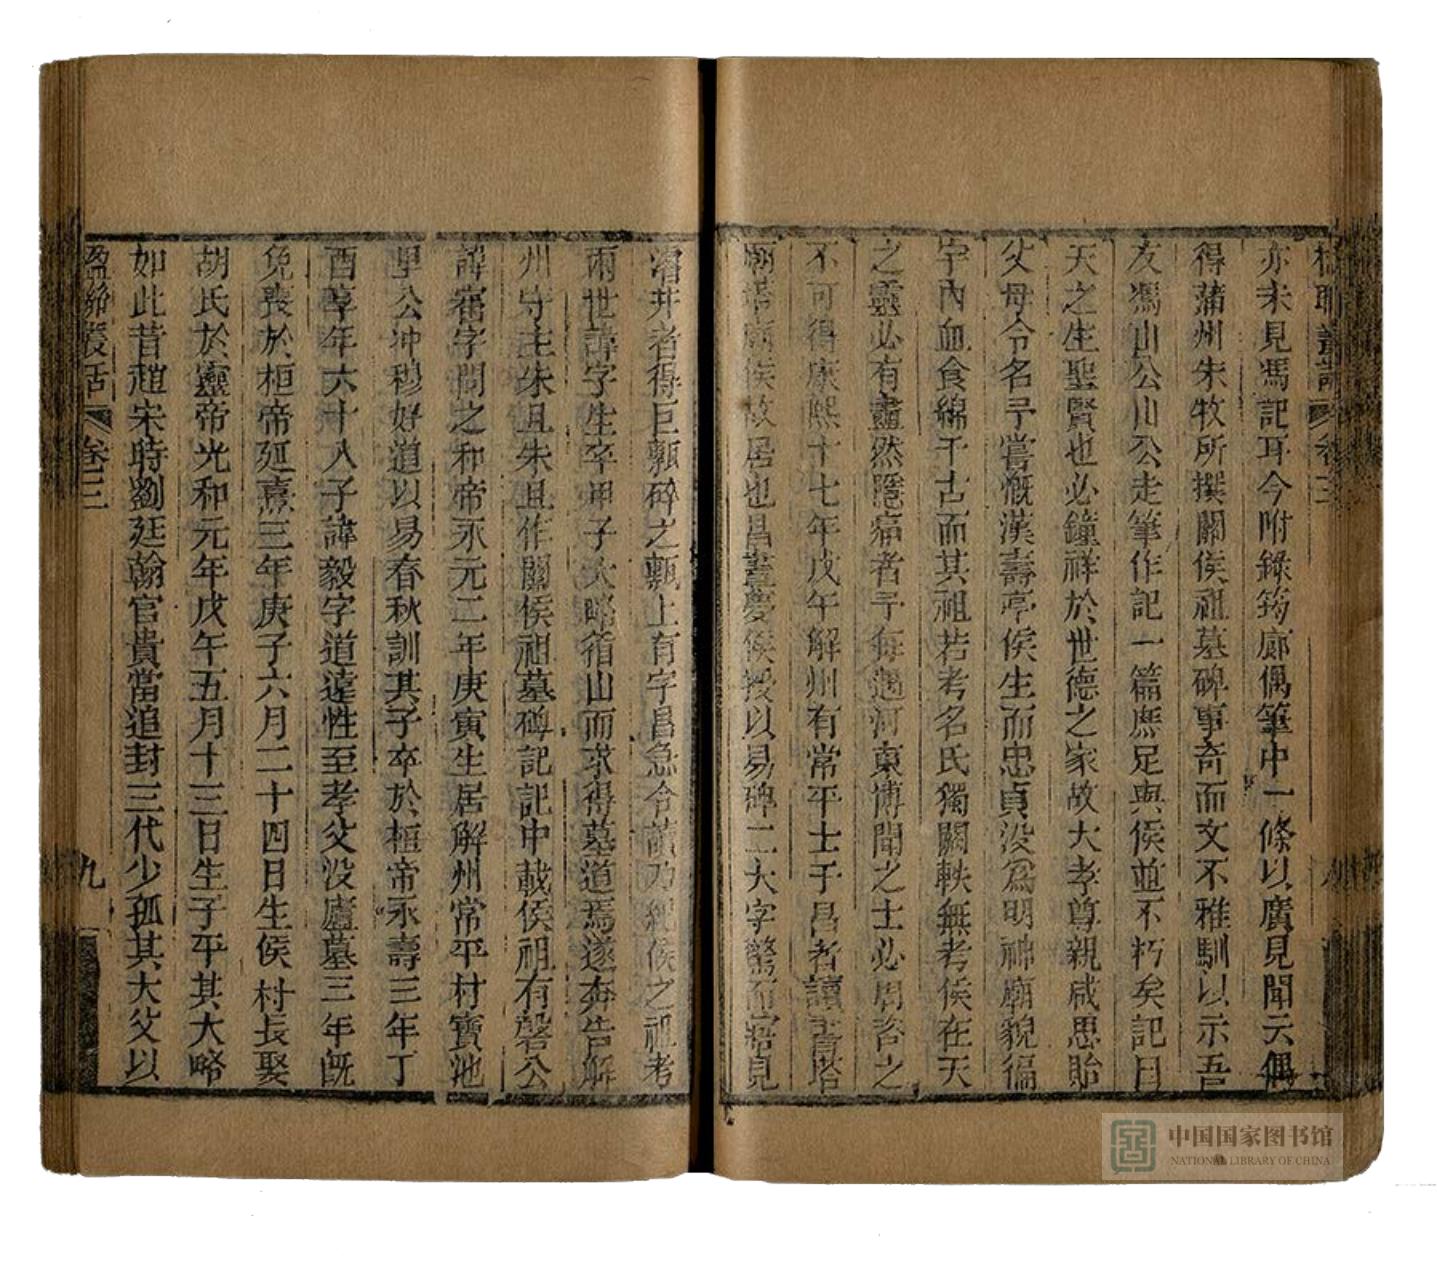 楹聯叢話 卷三
亦未見馮記耳今附錄筠廊偶筆中一條以廣見聞云偶
得蒲州朱牧所撰關侯祖墓碑事奇而文不雅馴以示吾
友馮山公山公走筆作記一篇庶足與侯並不朽矣記曰
天之生聖賢也必鐘祥於世德之家故大孝尊親咸思貽
父母令名予嘗慨漢壽亭侯生而忠貞沒爲明神廟貌徧
宇內血食綿千古而其祖若考名氏獨闕軼無考侯在天
之靈必有盡然隱痛者予每遇河東博聞之士必周咨之
不可得康熙十七年戊午解州有常平士于昌者讀書塔
廟塔廟侯故居也昌晝夢侯授以易碑二大字驚而寤見
濬井者得巨甎碎之甎上有字昌急合讀乃紀侯之祖考
兩世諱字生卒甲子大略循山而求得墓道焉遂奔告解
州守主朱旦朱旦作關侯祖墓碑記記中載侯祖石磐公
諱審字問之和帝永元二年庚寅生居解州常平村寶池
里公沖穆好道以易春秋訓其子卒於桓帝永壽三年丁
酉享年六十八子諱毅字道遠性至孝父沒廬墓三年旣
免喪於桓帝延熹三年庚子六月二十四日生侯侯長娶
胡氏於靈帝光和元年戊午五月十三日生子平其大略
如此昔趙宋時劉廷翰官貴當追封三代少孤其大父以
楹聯叢話 卷三 九
中国国家图书馆
NATIONAL LIBRARY OF CHINA